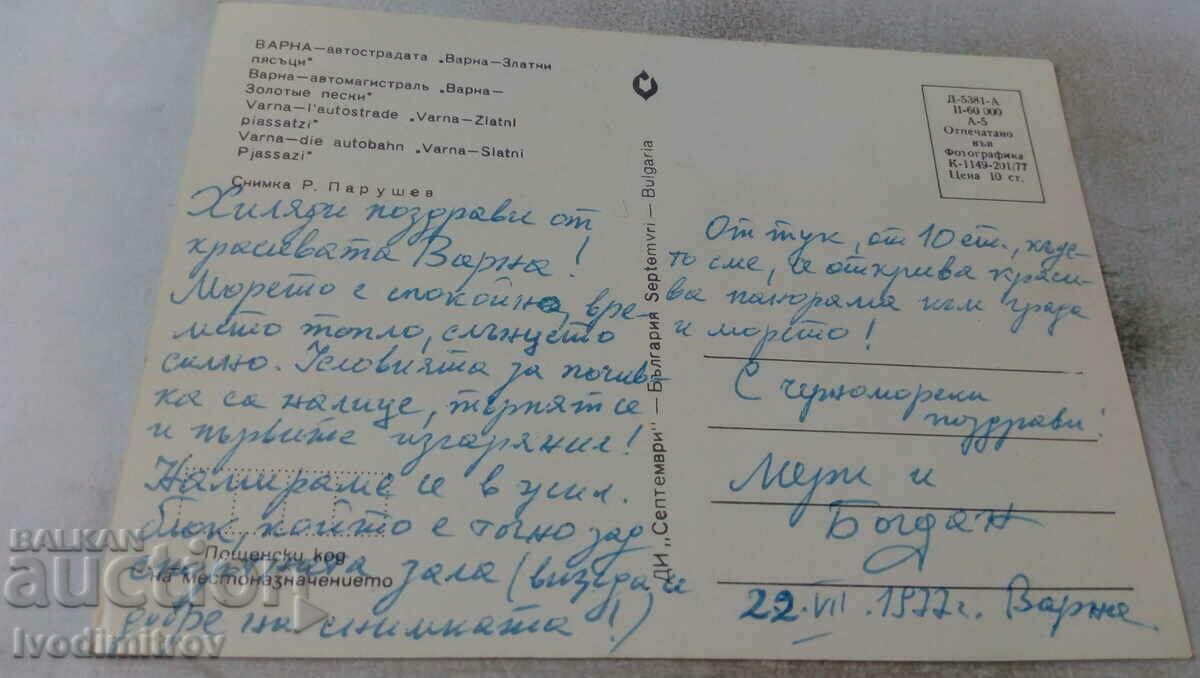 ВАРНА—автострадата „Варна—Златни
пясъци"
Варна—автомагистраль „Варна—
Золотые пески"
Varna—l'autostrade „Varna—Zlatni
piassatzi"
Varna—die autobahn „Varna—Slatni
Pjassazi"
Снимка Р. Парушев
Хиляди поздрави от
красивата Варна!
Морето е спокойно, вре-
мето топло, слънцето
силно. Условията за почив-
ка са налице, търпят се
и първите изгаряния!
Намираме се в
блок, който е точно зад
спортната зала (вижда се
добре на снимката!)
Пощенски код
на местоназначението
ДИ „Септември" — България Septemvri — Bulgaria
Д-5381-А
П-60 000
А-5
Отпечатано
във
Фотографика
К-1149-201/77
Цена 10 ст.
От тук, от 10 ет., къде-
то сме, се открива краси-
ва панорама към града
и морето!
С черноморски
поздрави!
Мери и
Богдан
22.VII.1977 г. Варна
BALKAN
auction
Ivodimitrov